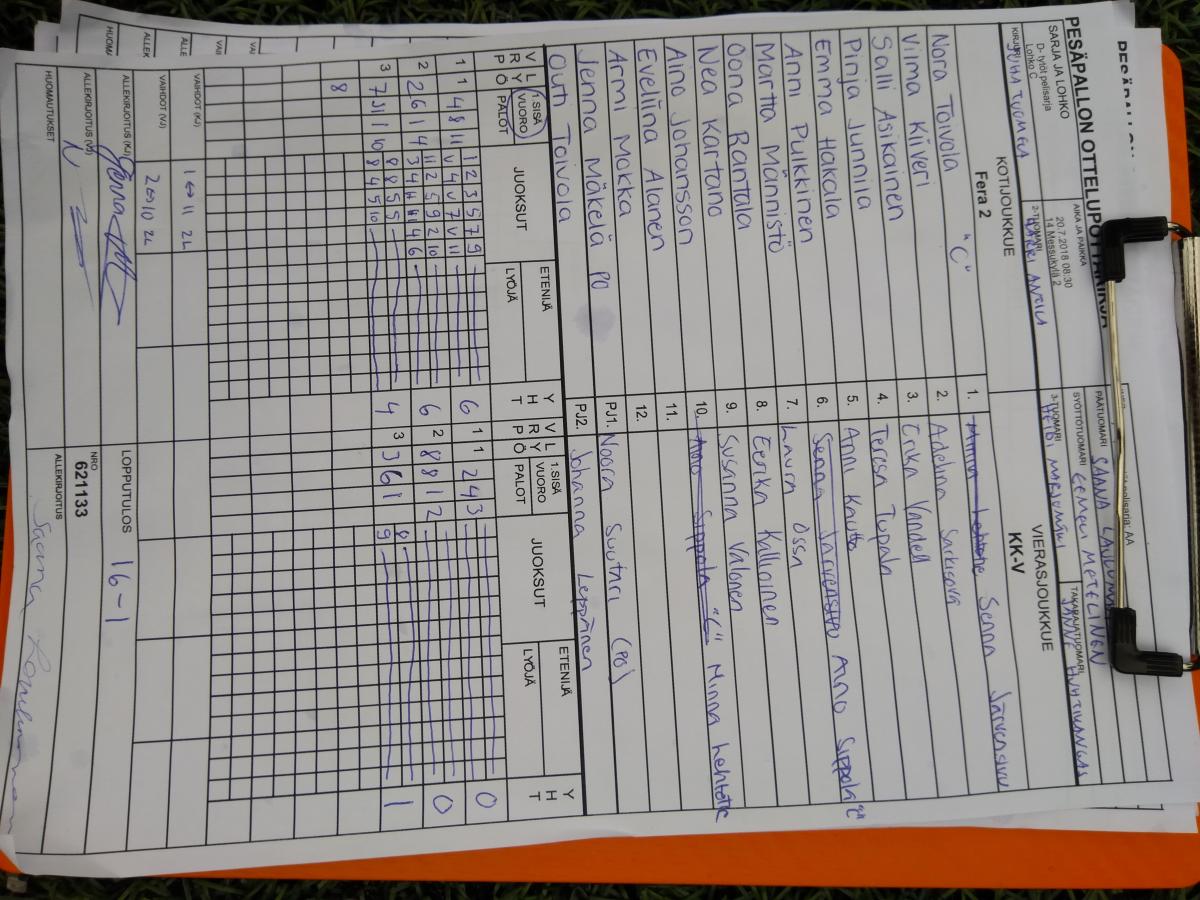 PESÄPALLON OTTELUPÖYTÄKIRJA
SARJA JA LOHKO
D-tytöt pelisarja
Lohko C
AIKA JA PAIKKA
20.7.2018 08:30
14 Messukylä 2
PÄÄTUOMARI
SYÖTTÖTUOMARI
EEMELI METELINEN
TAKARAJATUOMARI
JANNE HUHTIKANGAS
KIRJURI
JUHA TUOMELA
2-TUOMARI
3-TUOMARI
HEIDI MARJOMÄKI
KOTIJOUKKUE
Fera 2
VIERASJOUKKUE
KK-V
Nora Toivola "C"
1. Minna Lehtone Senna Järvensivu
Vilma Kiiveri
2. Adelina Sarkisova
Salli Asikainen
3. Erika Vandell
Pinja Junnila
4. Teresa Tupala
Emma Hakala
5. Anni Kautto
Anni Pulkkinen
6. Senna Järvensivu Aino Sippola "C"
Martta Männistö
7. Laura Ossa
Oona Rantala
8. Eerika Kallioinen
Nea Kartano
9. Susanna Valonen
Aino Johansson
10. Aino Sippola "C" Minna Lehtone
Eveliina Alanen
11.
Armi Mokka
12.
Jenna Mäkelä PO
PJ1. Noora Suutari (PO)
Outi Toivola
PJ2. Johanna Leppänen
V R P
L Y Ö
1.SISÄ VUORO PALOT
JUOKSUT
ETENIJÄ
LYÖJÄ
Y H T
V R P
L Y Ö
1.SISÄ VUORO PALOT
JUOKSUT
ETENIJÄ
LYÖJÄ
Y H T
1 1 4 8 11
1 2 3 5 7 9
V 4 V 7 V 11
6
1 1 2 4 3
0
2 2 6 1 4
11 2 5 9 2 10
3 4 H H 4 6
6
2 8 8 1 2
0
3 7 3 1 1 10
8 8 5 5
8 4 5 10
4
3 3 6 1
8
9
1
8
VAIHDOT (KJ)
1 ↔ 11 2L
VAIHDOT (VJ)
2 ↔ 10 2L
ALLEKIRJOITUS (KJ)
LOPPUTULOS
16-1
ALLEKIRJOITUS (VJ)
NRO
621133
HUOMAUTUKSET
ALLEKIRJOITUS